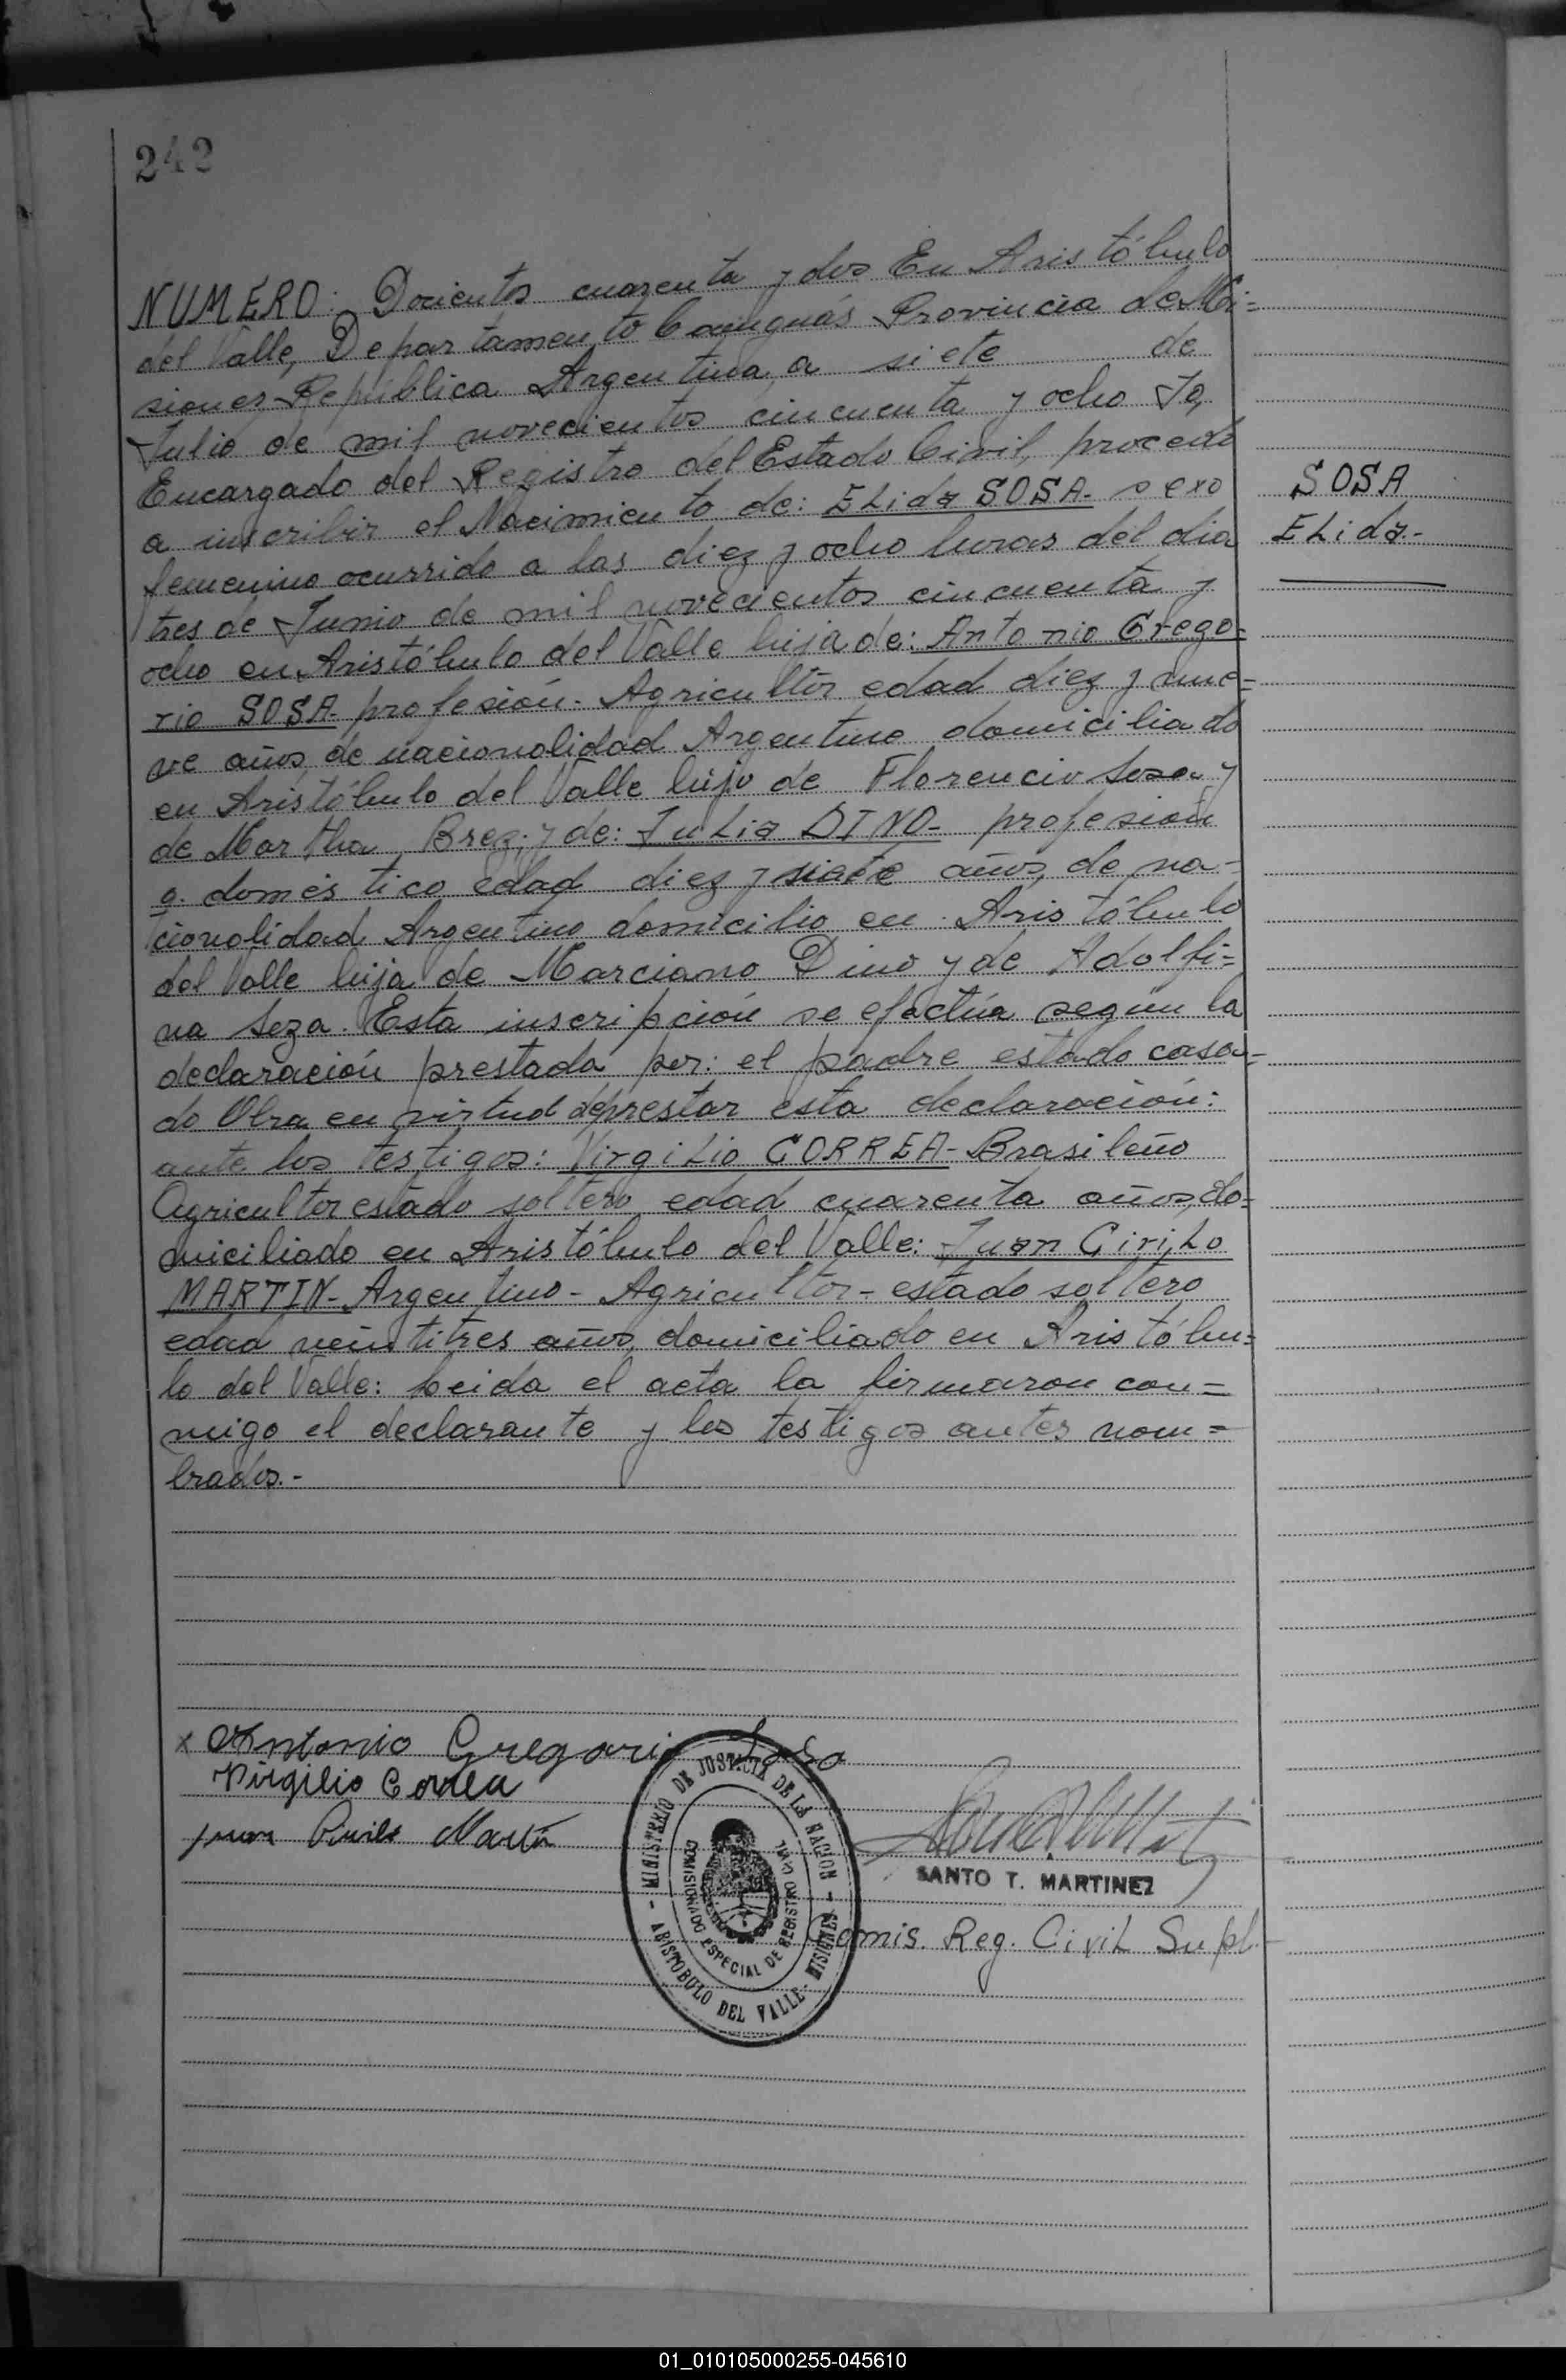 242
NUMERO: Docientos cuarenta y dos En Aristóbulo
del Valle, Departamento Cainguás Provincia de Mi=
siones República Argentina, a siete de
Julio de mil novecientos cincuenta y ocho Yo,
Encargado del Registro del Estado Civil, procedo
a inscribir el Nacimiento de: ELida SOSA- sexo
femenino ocurrido a las diez y ocho horas del dia
tres de Junio de mil novecientos cincuenta y
ocho en Aristóbulo del Valle hija de: Antonio Grego=
rio SOSA- profesión- Agricultor edad diez y nue=
ve años, de nacionalidad Argentino domiciliado
en Aristóbulo del Valle hijo de Florencio Sosa y
de Martha Brez; y de: Julia DINO- profesión
q. doméstico edad diez y siete años, de na-
cionalidad Argentino domicilio en Aristóbulo
del Valle hija de Marciano Dino y de Adolfi=
na Seza. Esta inscripción se efectúa según la
declaración prestada por: el padre estado casa=
do Obra en virtud de prestar esta declaración:
ante los testigos: Virgilio CORREA- Brasileño
Agricultor estado soltero edad cuarenta años, do=
miciliado en Aristóbulo del Valle: Juan CiriLo
MARTIN- Argentino- Agricultor- estado soltero
edad veintitres años, domiciliado en Aristóbu=
lo del Valle: Leida el acta la firmaron con=
migo el declarante y los testigos antes nom=
brados.-
SOSA
ELida.-
x Antonio Gregorio Soso
Virgilio Correa
Juan Cirilo Martin
MINISTERIO DE JUSTICIA DE LA NACION
COMISIONADO ESPECIAL DE REGISTRO CIVIL
ARISTOBULO DEL VALLE - MISIONES
SANTO T. MARTINEZ
Comis. Reg. CiviL Supl.
01_010105000255-045610